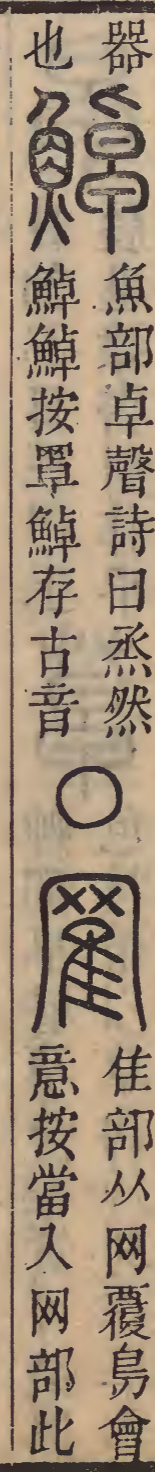 器
也
䱜
魚部卓聲詩曰烝然
䱜䱜按罩䱜存古音
○
䍜
隹部从网覆鳥會
意按當入网部此